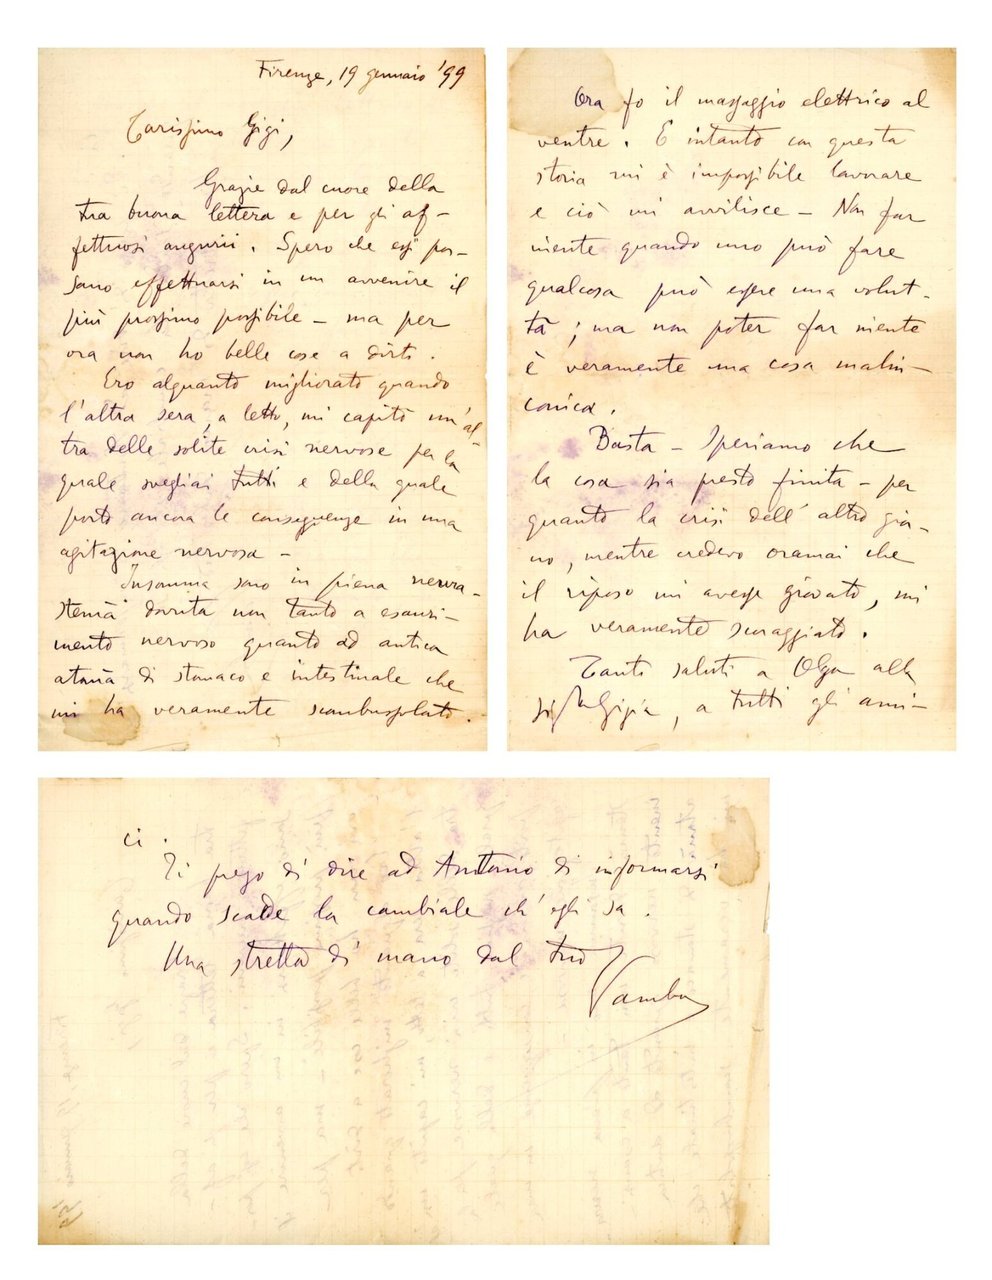 Firenze, 19 gennaio '99
Carissimo Gigi,
Grazie dal cuore della
tua buona lettera e per gli af-
fettuosi augurii. Spero che essi pos-
sano effettuarsi in un avvenire il
più prossimo possibile - ma per
ora non ho belle cose a dirti.
Ero alquanto migliorato quando
l'altra sera, a letto, mi capitò un'al-
tra delle solite crisi nervose per la
quale svegliai tutti e della quale
porto ancora le conseguenze in una
agitazione nervosa -
Insomma sono in piena nevra-
stenia dovuta non tanto a esauri-
mento nervoso quanto ad antica
atonia di stomaco e intestinale che
mi ha veramente scombussolato.
Ora fo il massaggio elettrico al
ventre. E intanto con questa
storia mi è impossibile lavorare
e ciò mi avvilisce - Non far
niente quando uno può fare
qualcosa può essere una volut-
tà; ma non poter far niente
è veramente una cosa malin-
conica.
Basta - Speriamo che
la cosa sia presto finita - per
quanto la crisi dell'altro gior-
no, mentre credevo oramai che
il riposo mi avesse giovato, mi
ha veramente scoraggiato.
Tanti saluti a Olga alla
Gigia, a tutti gli ami-
ci.
Ti prego di dire ad Antonio di informarsi
quando scade la cambiale ch'egli sa.
Una stretta di mano dal tuo
Vamba